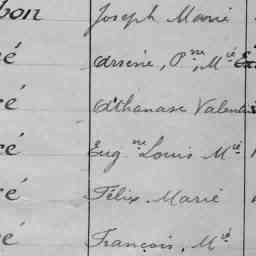 bon Joseph Marie
é Arsène, Pre, Mié
é Athanase Valentin
é Eugne Louis Mié
é Félix Marie
é François, Mié